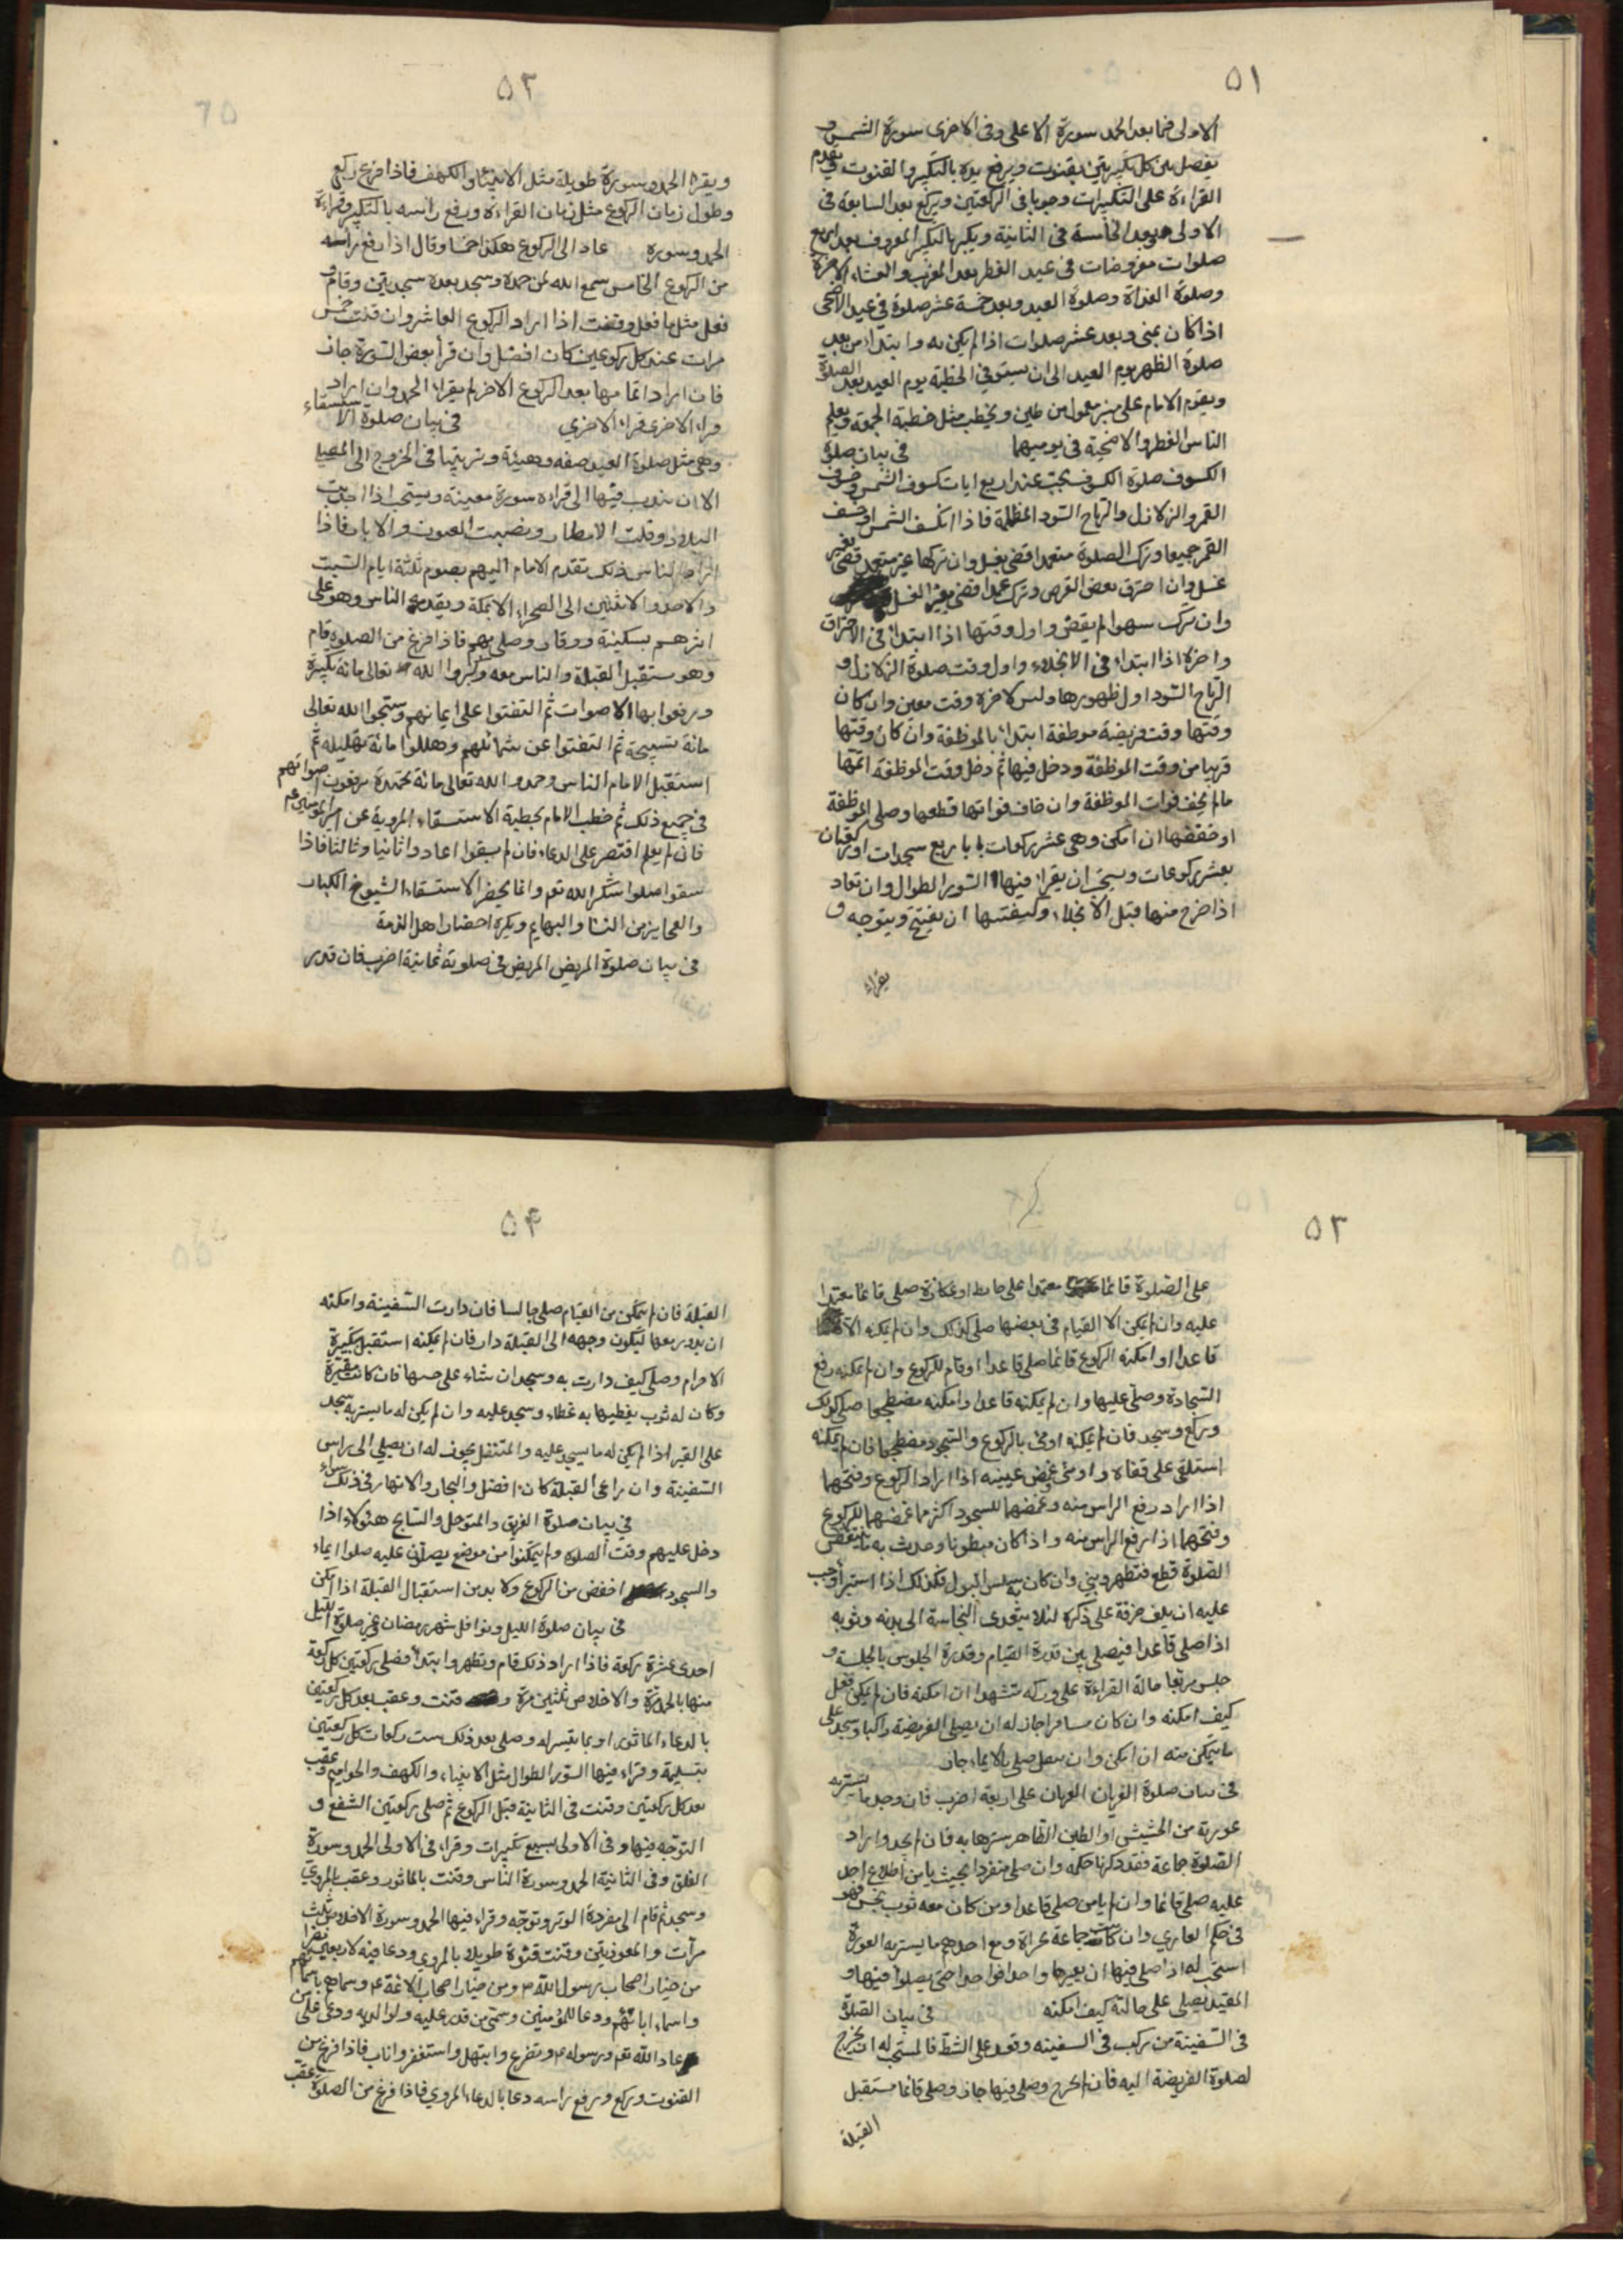 ٥١
الاولى فيما بعد الحمد سورة الاعلى وفى الاخرى سورة الشمس و
يفصل بين كل تكبيرتين بقنوت ويرفع يده بالتكبير والقنوت ويقدم
القراءة على التكبيرات وجوبا فى الركعتين ويركع بعد السابعة فى
الاولى وبعد الخامسة فى الثانية ويكبر بالتكبير المعروف بعد اربع
صلوات مفروضات فى عيد الفطر بعد المغرب والعشاء الاخرة
وصلوة الغداة وصلوة العيد وبعد خمسة عشر صلوة فى عيد الاضحى
اذا كان بمنى وبعد عشر صلوات اذا لم يكن به وابتداء من بعد
صلوة الظهر يوم العيد الى ان يستوفي الخطبة يوم العيد بعد الصلوة
ويقوم الامام على منبر معمول من طين ويخطب مثل خطبة الجمعة ويعلم
الناس الفطر والاضحية فى يوميهما فى بيان صلوة
الكسوف صلوة الكسوف يجب عند اربع ايات كسوف الشمس وخسوف
القمر والزلازل والرياح السود المظلمة فاذا انكسف الشمس او خسف
القمر جميعا وترك الصلوة متعمدا قضى بغسل وان تركها غير متعمد قضى بغير
غسل وان احترق بعض القرص وترك عمدا قضى بغير الغسل
وان ترك سهوا لم يقض واول وقتها اذا ابتداء فى الاحتراق
واخره اذا ابتداء فى الانجلاء واول وقت صلوة الزلازل و
الرياح السود اول ظهورها وليس لاخره وقت معين وان كان
وقتها وقت فريضة موظفة ابتداء بالموظفة وان كان وقتها
قريبا من وقت الموظفة ودخل فيها ثم دخل وقت الموظفة اتمها
مالم يخف فوات الموظفة وان خاف فواتها قطعها وصلى الموظفة
او خففها ان امكن وهى عشر ركعات باربع سجدات او ركعتان
بعشر ركوعات ويستحب ان يقراء فيها السور الطوال وان تعاد
اذا خرج منها قبل الانجلاء وكيفيتها ان يفتتح ويتوجه و
يقراء
٥٢
ويقرا الحمد وسورة طويلة مثل الانبياء والكهف فاذا فرغ ركع
وطول زمان الركوع مثل زمان القراءة ورفع راسه بالتكبير وقراءة
الحمد وسورة عاد الى الركوع هكذا خمسا وقال اذا رفع راسه
من الركوع الخامس سمع الله لمن حمده وسجد بعده سجدتين وقام و
فعل مثل ما فعل وقنت اذا اراد الركوع العاشر وان قنت خمس
مرات عند كل ركوعين كان افضل وان قرأ بعض السورة جاز
فان اراد اتمامها بعد الركوع الاخر لم يقراء الحمد وان اراد
قراءة الاخرى قراء الاخرى فى بيان صلوة الاستسقاء
وهى مثل صلوة العيد صفة وهيئة وترتيبا فى الخروج الى المصلى
الا ان يندب فيها الى قراءة سورة معينة ويستحب اذا اجدبت
البلاد وقلت الامطار ونضبت العيون والابار فاذا
اراد الناس ذلك تقدم الامام اليهم بصوم ثلثة ايام السبت
والاحد والاثنين الى الصحراء الا بمكة ويقدم الناس وهو على
اثرهم بسكينة ووقار وصلى بهم فاذا فرغ من الصلوة قام
وهو مستقبل القبلة والناس معه وكبروا الله تعالى مائة تكبيرة
ورفعوا بها الاصوات ثم التفتوا على ايمانهم وسبحوا الله تعالى
مائة تسبيحة ثم التفتوا عن شمائلهم وهللوا مائة تهليلة ثم
استقبل الامام الناس وحمدوا الله تعالى مائة تحميدة يرفعون اصواتهم
فى جميع ذلك ثم خطب الامام بخطبة الاستسقاء المروية عن امير المؤمنين ع
فان لم يعلم اقتصر على الدعاء فان لم يسقوا اعادوا ثانيا وثالثا فاذا
سقوا صلوا شكرا لله تعه وانما يحضر الاستسقاء الشيوخ الكبار
والعجايز من النسا والبهايم ويكره احضار اهل الذمة
فى بيان صلوة المريض المريض فى صلوته ثمانية اضرب فان قدر
٥٣
على الصلوة قائما معتمدا على حايط او عكازة صلى قائما معتمدا
عليه وان لم يمكن الا القيام فى بعضها صلى كذلك وان لم يمكنه الا
قاعدا او امكنه الركوع قائما صلى قاعدا وقام للركوع وان لم يمكنه رفع
السجادة وصلى عليها وان لم يمكنه قاعدا وامكنه مضطجعا صلى كذلك
وركع وسجد فان لم يمكنه اومى بالركوع والسجود مضطجعا فان لم يمكنه
استلقى على قفاه واومى غمض عينيه اذا اراد الركوع وفتحها
اذا اراد رفع الراس منه وغمضهما للسجود اكثر مما غمضهما للركوع
وفتحهما اذا رفع الراس منه واذا كان مبطونا وحدث به ما ينقض
الصلوة قطع فتطهر وبنى وان كان به سلس البول فكذلك اذا استبرأ وجب
عليه ان يلف خرقة على ذكره لئلا يتعدى النجاسة الى بدنه وثوبه
اذا صلى قاعدا فيصلى بين قدرة القيام وقدرة الجلوس بالجلسة و
جلس مربعا حالة القراءة على وركه متشهدا ان امكنه فان لم يمكن فعل
كيف امكنه وان كان مسافرا جاز له ان يصلى الفريضة راكبا وسجد على
ما يتمكن منه ان امكن وان يصلى بالايماء جاز
فى بيان صلوة العريان العريان على اربعة اضرب فان وجد ما يستر به
عورته من الحشيش او الطين الظاهر سترها به فان لم يجد واراد
الصلوة جماعة فقد ذكرنا حكمه وان صلى منفردا بحيث يامن اطلاع احد
عليه صلى قائما وان لم يامن صلى قاعدا ومن كان معه ثوب نجس فهو
فى حكم العاري وان كانت جماعة عراة ومع احدهم ما يستر به العورة
استحب له اذا صلى فيها ان يعيرها واحدا فواحدا حتى يصلوا فيها و
المقيد يصلى على حالته كيف امكنه فى بيان الصلوة
فى السفينة من ركب فى السفينة وقعد على الشط فالمستحب له ان يخرج
لصلوة الفريضة اليه فان لم يخرج وصلى فيها جاز وصلى قائما مستقبل
القبلة
٥۴
القبلة فان لم يتمكن من القيام صلى جالسا فان دارت السفينة وامكنه
ان يدور معها ليكون وجهه الى القبلة دار فان لم يمكنه استقبل بتكبيرة
الاحرام وصلى كيف دارت به وسجد ان شاء على خشبها فان كانت مقيرة
وكان له ثوب يغطيها به غطاء وسجد عليه وان لم يكن له ما يستر به سجد
على القير اذا لم يكن له ما يسجد عليه والمتنفل يجوز له ان يصلي الى راس
السفينة وان راعى القبلة كان افضل والبحار والانهار فى ذلك سواء
فى بيان صلوة الغريق والمتوحل والسابح هؤلاء اذا
دخل عليهم وقت الصلوة ولم يتمكنوا من موضع يصلون عليه صلوا ايماء
والسجود اخفض من الركوع ولا بد من استقبال القبلة اذا امكن
فى بيان صلوة الليل ونوافل شهر رمضان وغير صلوة الليل
احدى عشرة ركعة فاذا اراد ذلك قام وتطهر وابتداء فصلى ركعتين كل ركعة
منها بالحمد مرة والاخلاص ثلثين مرة و قنت وعقب بعد كل ركعتين
بالدعاء الماثور او بما تيسر له وصلى بعد ذلك ست ركعات كل ركعتين
بتسليمة وقراء فيها السور الطوال مثل الانبياء والكهف والحواميم وعقب
بعد كل ركعتين وقنت فى الثانية قبل الركوع ثم صلى ركعتين الشفع و
التوجه فيها وفى الاولى بسبع تكبيرات وقراء فى الاولى الحمد وسورة
الفلق وفى الثانية الحمد وسورة الناس وقنت بالماثور وعقب بالمروي
وسجد ثم قام الى مفردة الوتر وتوجه وقراء فيها الحمد وسورة الاخلاص ثلث
مرات والمعوذتين وقنت قنوة طويلا بالمروي ودعا فيه لاربعين نفرا
من خيار اصحاب رسول الله ص ومن خيار اصحاب الائمة ع وسماهم باسمائهم
واسماء ابائهم ودعا للمؤمنين وسمى من قدر عليه ولوالديه ودعى على من
عاد الله تعه ورسوله ص وتضرع وابتهل واستغفر واناب فاذا فرغ من
القنوت وركع ورفع راسه دعا بالدعاء المروي فاذا فرغ من الصلوة عقب